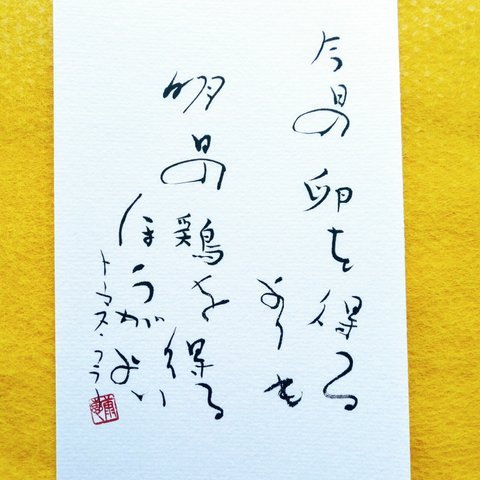 今日の卵を得る
よりも
明日の鶏を得る
ほうがよい
トーマス・フラー